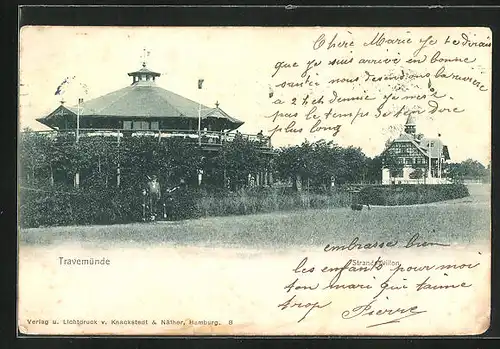 Chère Marie je te dirais
que je suis arrivé en bonne
santé nous descendons la rivière
a 2 1/2 h demie je ai pas
plus le temps de t'en dire
plus long
embrasse bien
les enfants pour moi
ton mari qui t'aime
trop Pierre
Travemünde Strand-Pavillon
Verlag u. Lichtdruck v. Knackstedt & Näther, Hamburg. 8